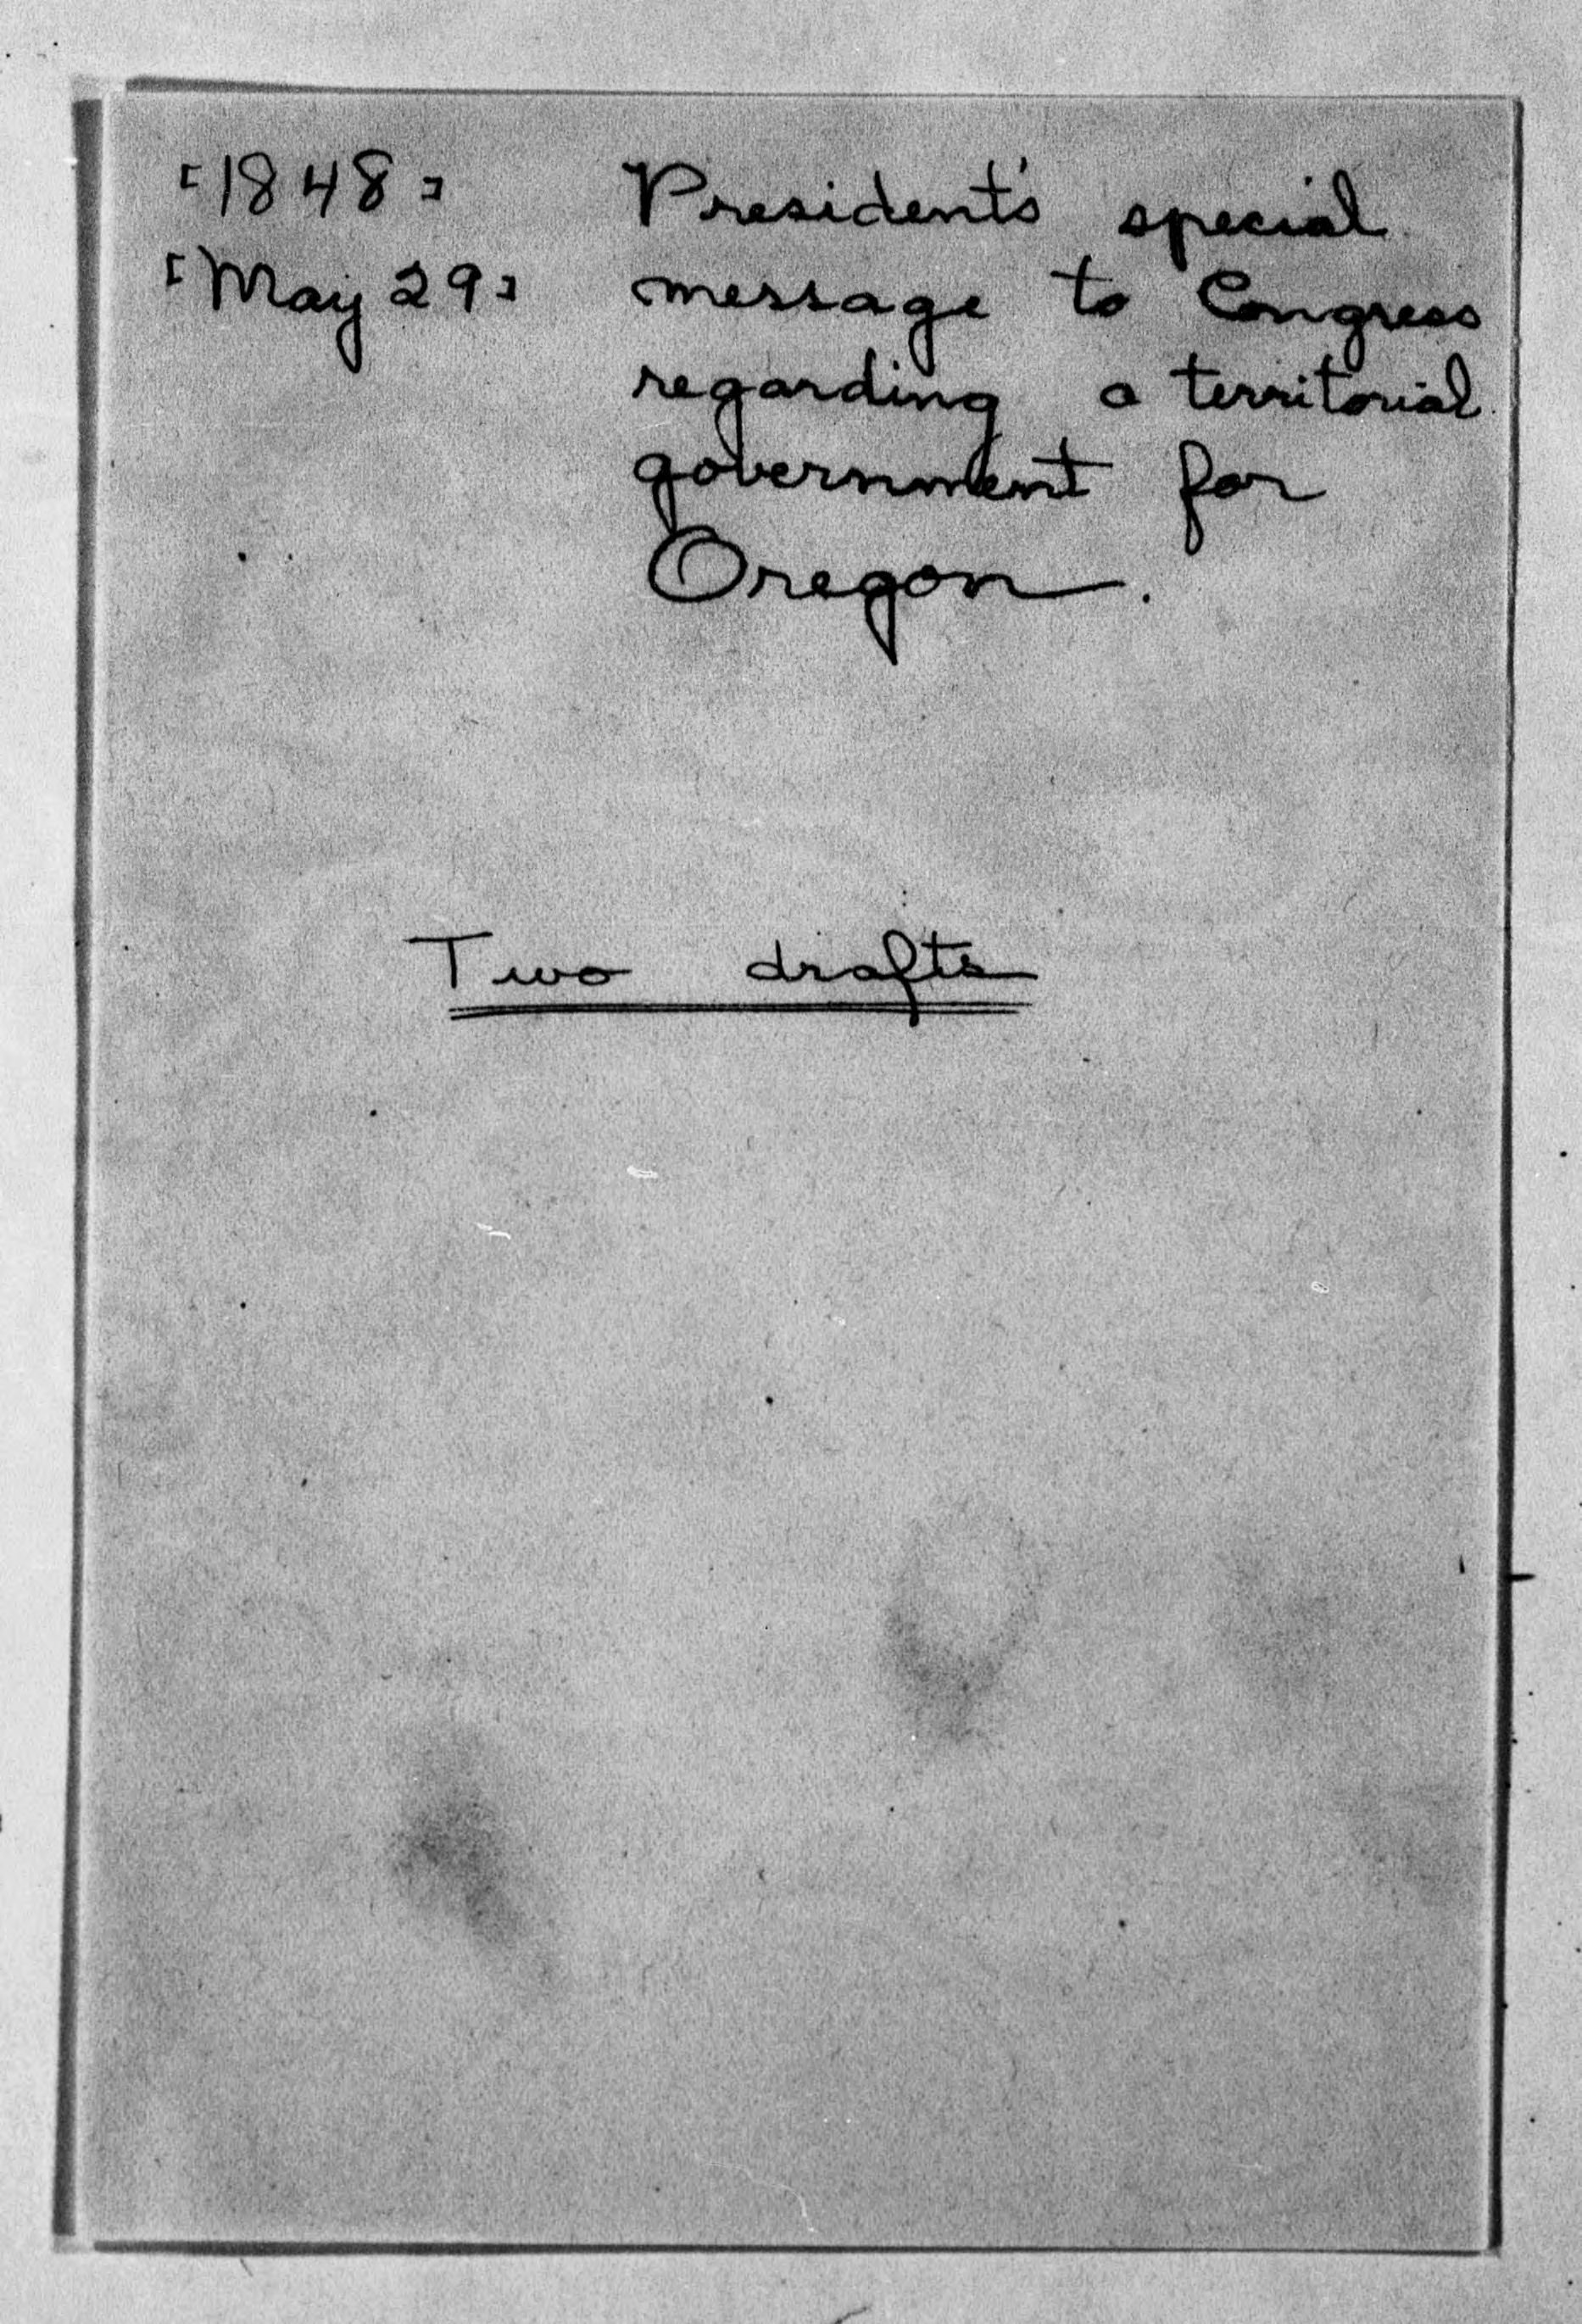 [1848] President's special
[May 29] message to Congress
regarding a territorial
government for
Oregon.
Two drafts